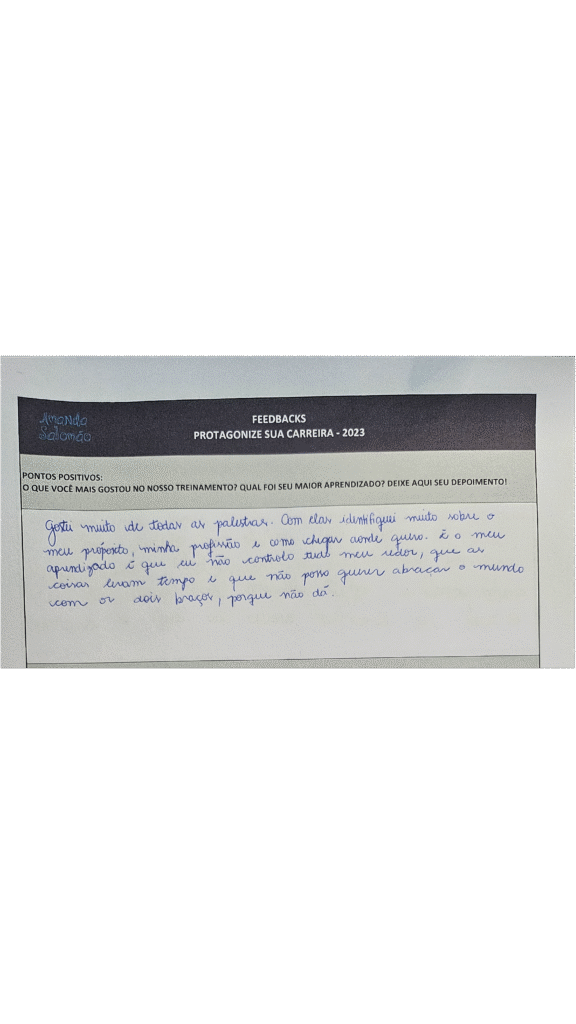 Amanda
Salomão
FEEDBACKS
PROTAGONIZE SUA CARREIRA - 2023
PONTOS POSITIVOS:
O QUE VOCÊ MAIS GOSTOU NO NOSSO TREINAMENTO? QUAL FOI SEU MAIOR APRENDIZADO? DEIXE AQUI SEU DEPOIMENTO!
Gostei muito de todas as palestras. Com elas identifiquei muito sobre o
meu propósito, minha profissão e como chegar aonde quero. E o meu
aprendizado é que eu não controlo tudo meu redor, que as
coisas levam tempo e que não posso querer abraçar o mundo
com os dois braços, porque não dá.